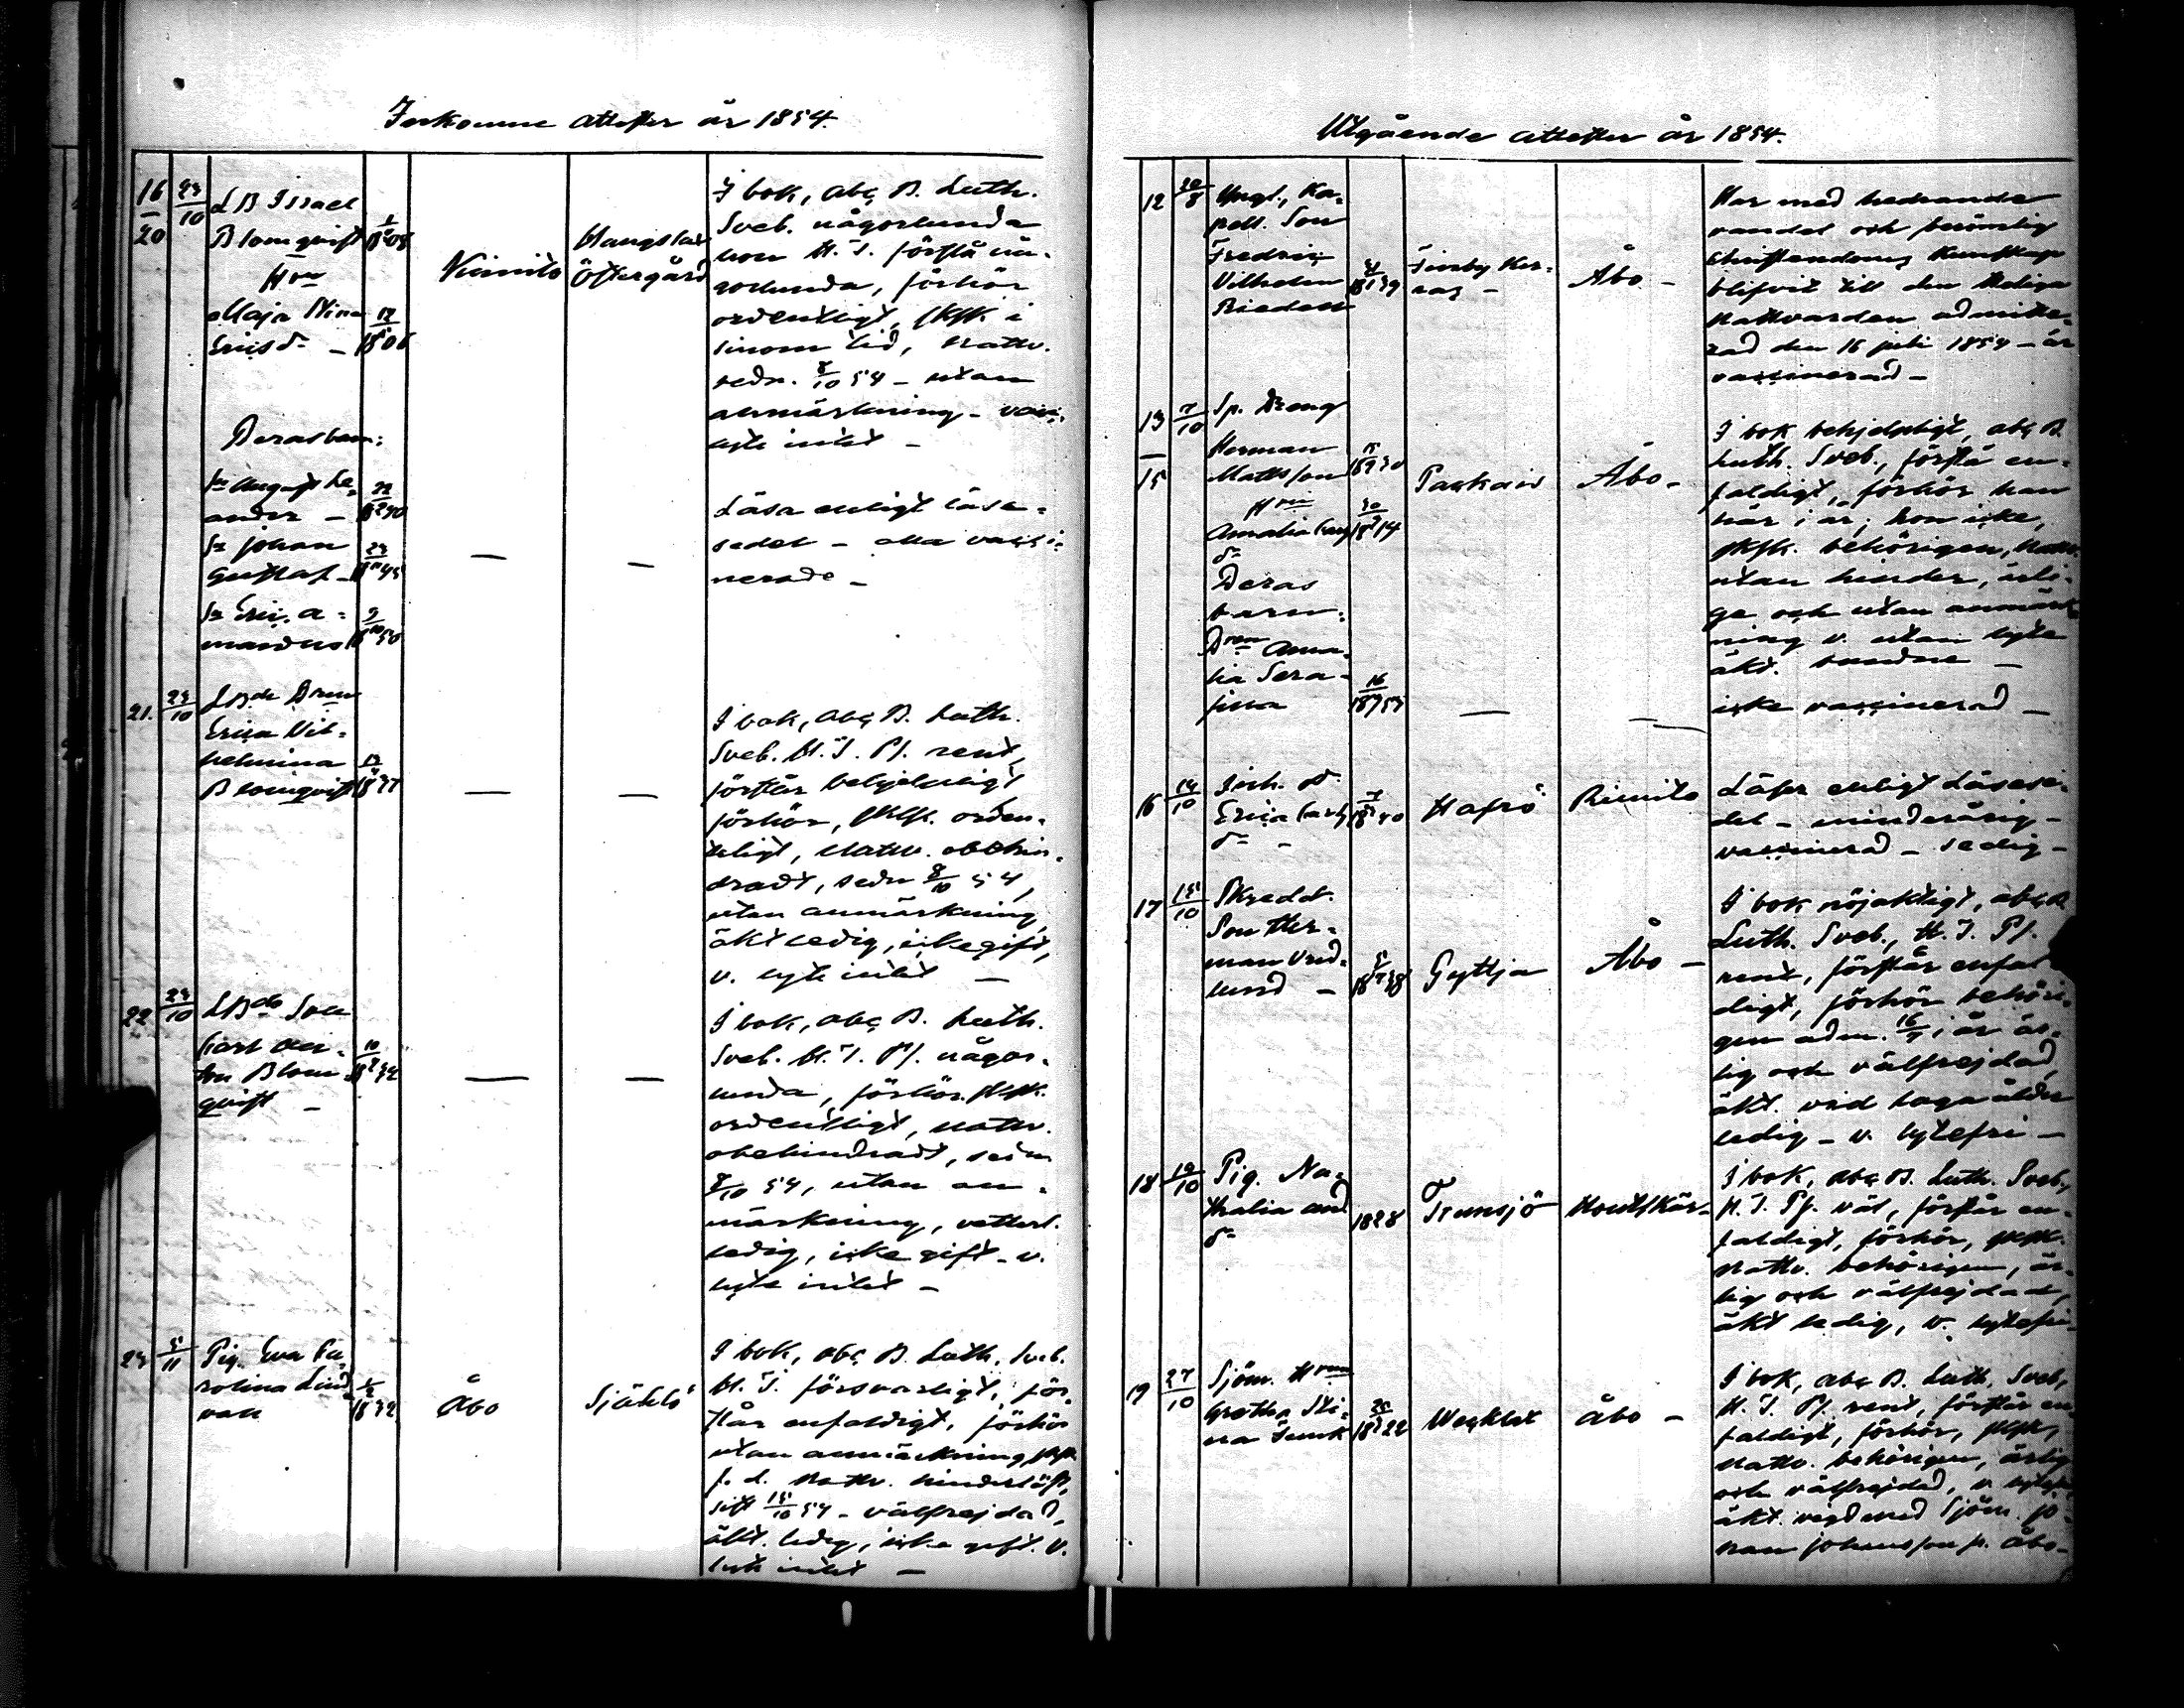 Inkomne attester år 1854.
16
—
20
23/10
LB Israel
Blomqvist
Hru
Maja Stina
Ericsdr —
Kimito
Östergård
I bok, abc B. Luth.
Sveb. någorlunda
hon H. T. förstå nå-
gorlunda, förhör
ordentligt, skfk. i
sinom tid, nattv.
sedn. 8/10 54 — utan
anmärkning — vacc.
lyte intet —
Deras barn:
Sn August Le-
ander —
Sn Johan
Gustaf —
Sn Eric A-
mandus
—
—
Läsa enligt läse-
sedel — alla vacci-
nerade —
21.
23/10
Erica Vil-
helmina
Blomqvist
—
—
I bok, abc B. Luth.
Sveb. H. T. Pf. rent,
förstår behjelpligt
förhör, skfk. orden-
teligt, nattv. obehin-
dradt, sedn 8/10 54,
utan anmärkning,
äkt ledig, icke gift,
v. lyte intet —
22
23/10
LBds Son
Carl An-
ton Blom-
qvist —
—
—
I bok, abc B. Luth.
Sveb. H. T. Pf. någor-
lunda, förhör. skfk.
ordentligt, nattv.
obehindradt, sedn
8/10 54, utan an-
märkning, vetterl.
ledig, icke gift — v.
lyte intet —
23
5/11
Pig. Eva Ca-
rolina Lind-
vall
Åbo
Själö
I bok, abc B. Luth. Sveb.
H. T. försvarligt, för-
står enfaldigt, förhör
utan anmärkning, skfk.
f. d. nattv. hinderlöst,
sist 15/10 54 — välfrejdad,
äkt. ledig, icke gift. v.
lyte intet —
Utgående attester år 1854.
12
20/8
Yngl., Ka-
pell. Son
Fredric
Vilhelm
Åbo —
Har med hedrande
vandel och berömlig
Christendoms Kunskap
blifvit till den Heliga
Nattvarden admitte-
rad den 16 juli 1854 — är
vaccinerad —
13
—
15
7/10
Sp. Dreng
Herman
Mattsson
Hru
Amalia Carls
dr
Deras
barn:
Drn Ama-
lia Sera-
fina
Åbo —
—
—
I bok behjelpligt, abc B.
Luth. Sveb., förstå en-
faldigt, förhör han
här i år; hon icke,
skfk. behörigen, nattv.
utan hinder, ärli-
ge och utan anmärk-
ning v. utan lyte
äkt. bundne —
icke vaccinerad —
16
14/10
Inh. dr
Erica Carls
dr —
Hafrö
Rimito
Läser enligt Läsese-
del — minderårig —
vaccinerad — ledig —
17
15/10
Skredd.
Son Her-
man Vrid-
lund —
Gyttja
Åbo —
I bok nöjaktigt, abc B
Luth. Sveb., H. T. Pf.
rent, förstår enfal-
digt, förhör behöri-
gen adm. 16/7 i år är-
lig och välfrejdad,
äkt. vid laga ålder
ledig — v. lytefri —
18
19/10
Pig. Na-
thalia And
dr
1828
Trunsjö
Houtskär —
I bok, abc B. Luth. Sveb.,
H. T. Pf. väl, förstår en-
faldigt, förhör, skfk.
nattv. behörigen, är-
lig och välfrejdad,
äkt ledig, v. lytefri
19
27/10
Sjöm. Hrun
Gretha Sti-
na Funk
Åbo —
I bok, abc B. Luth. Sveb.
H. T. Pf. rent, förstår en-
faldigt, förhör, skfk,
nattv. behörigen, ärlig
och välfrejdad, v. lytefri
äkt. vigd med Sjöm. Jo-
han Johansson fr. Åbo —